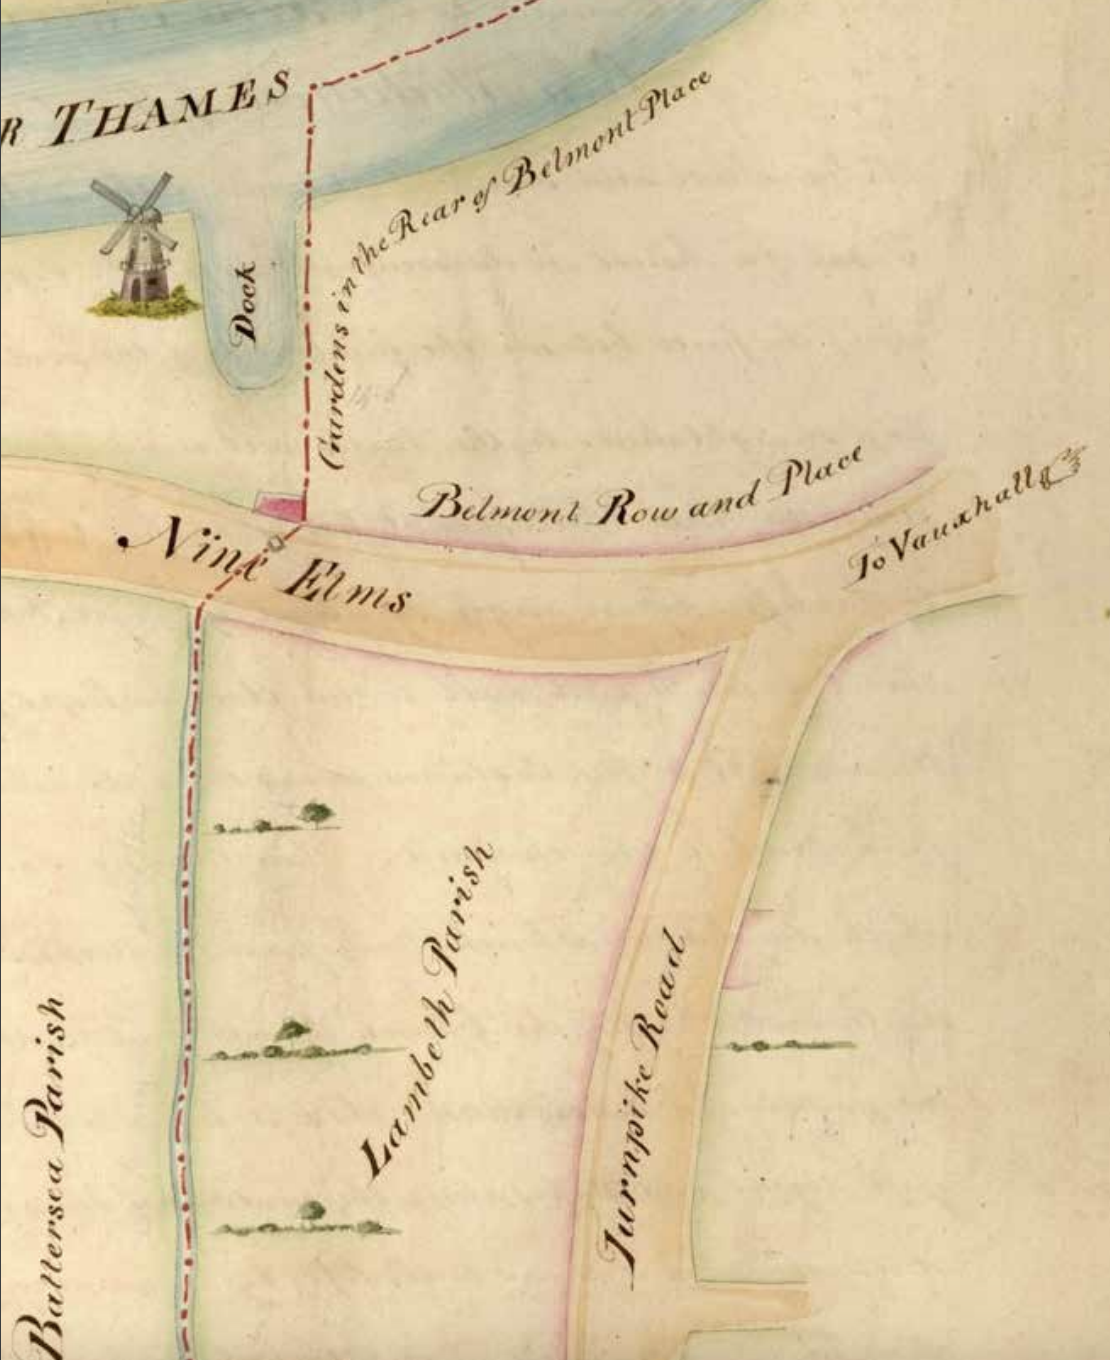 R THAMES
Gardens in the Rear of Belmont Place
Dock
Belmont Row and Place
To Vauxhall
Nine Elms
Lambeth Parish
Turnpike Road
Battersea Parish